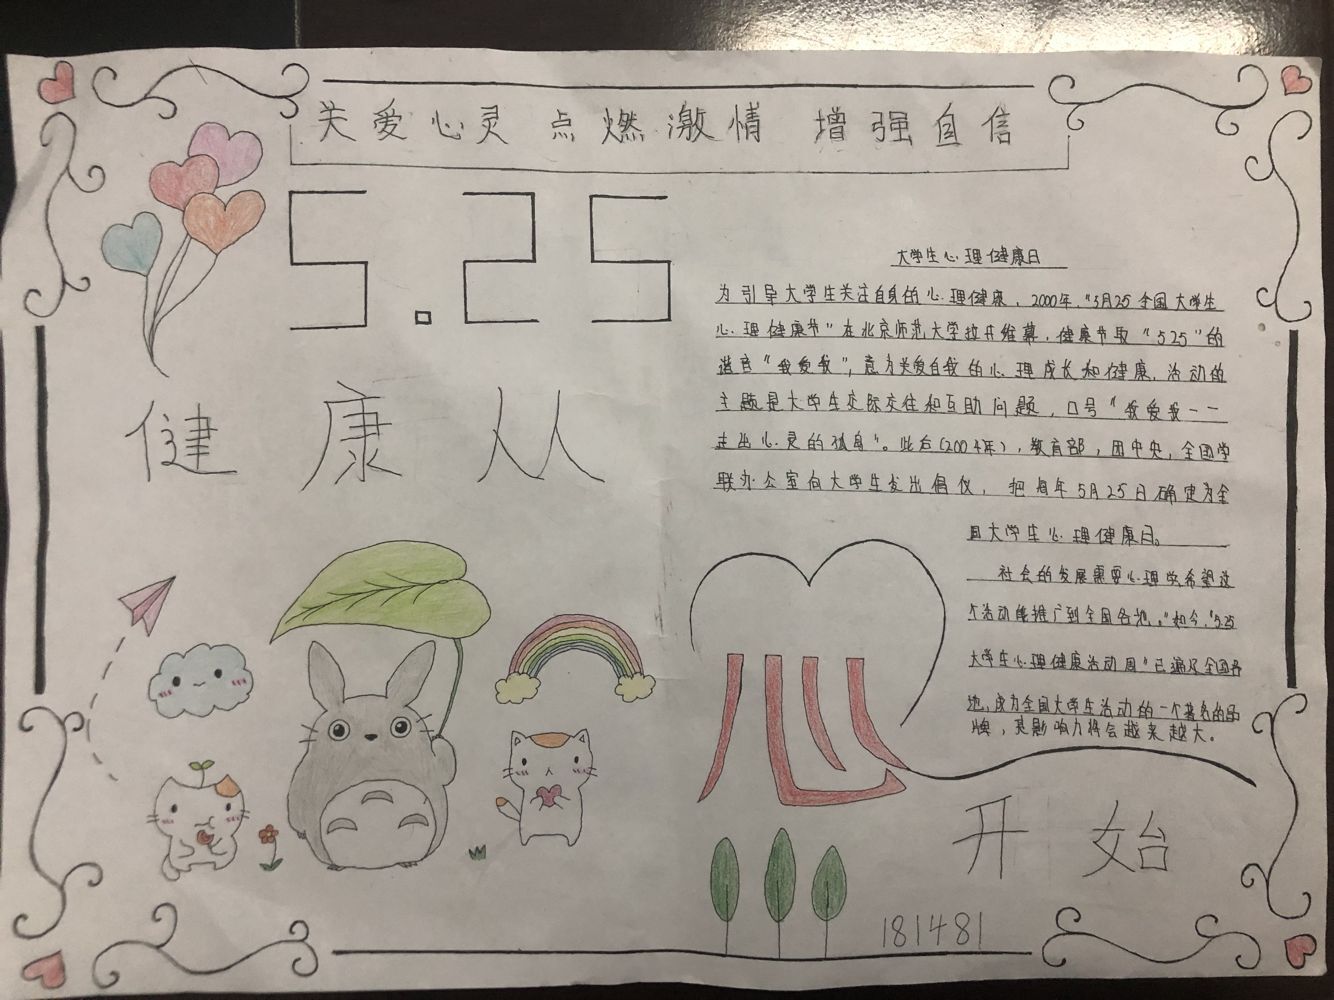 关爱心灵 点燃激情 增强自信
5.25
健康从
大学生心理健康日
为引导大学生关注自身的心理健康，2000年，“5月25全国大学生
心理健康节”在北京师范大学拉开维幕，健康节取“525”的
谐音“我爱我”，意为关爱自我的心理成长和健康，活动的
主题是大学生交际交往和互助问题，口号“我爱我一一
走出心灵的孤岛”。此后(2004年)，教育部，团中央，全国学
联办公室向大学生发出倡仪，把每年5月25日确定为全
国大学生心理健康日。
社会的发展需要心理学希望这
个活动能推广到全国各地。”如今，“525
大学生心理健康活动周”已遍及全国各
地，成为全国大学生活动的一个著名的品
牌，其影响力将会越来越大。
心
开始
181481